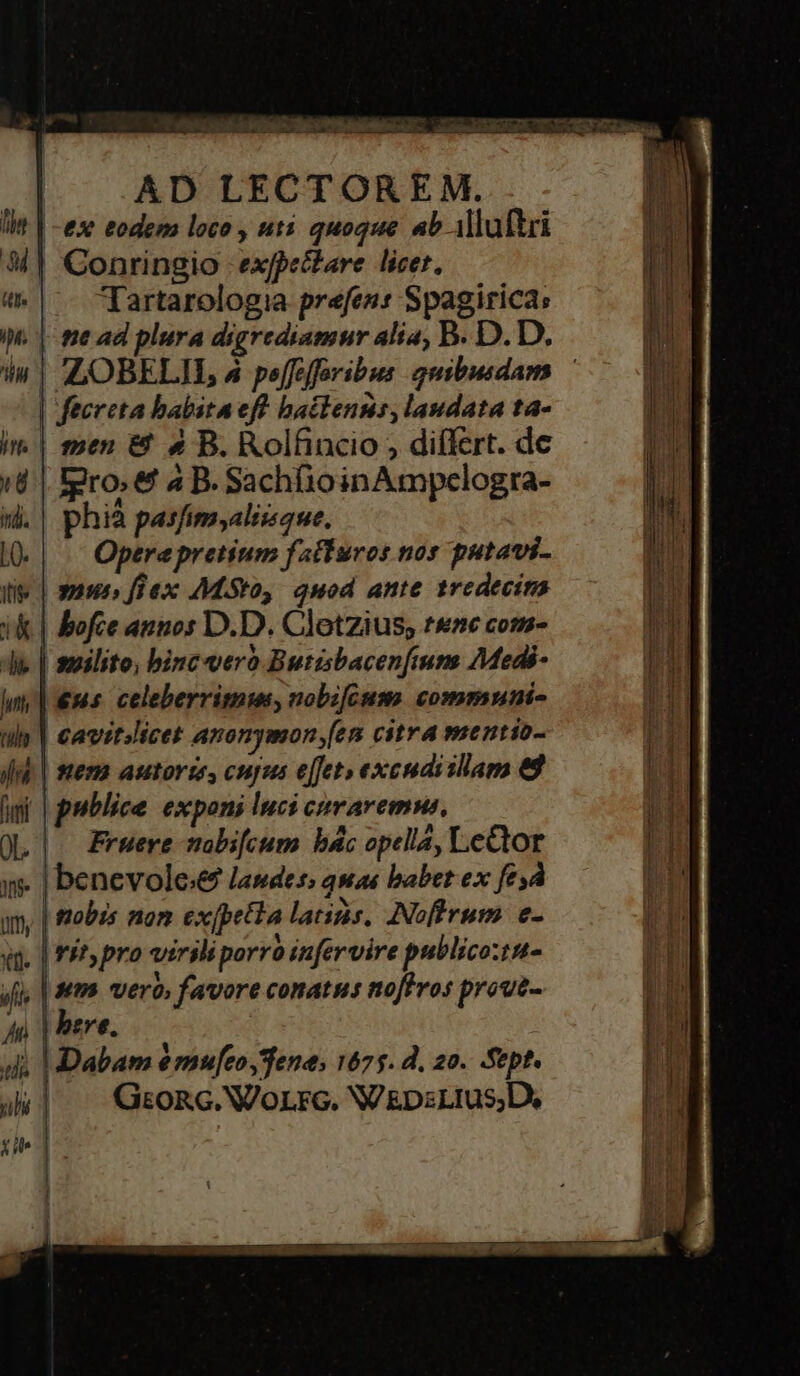 AD LECTOREM.
ex eodem loco, uti quoque ab illuſtri
Conringio exſpectare licet.
Tartarologia præſens Spagirica,
ne ad plura digrediamur alia, B. D. D.
ZOBELII, à poſſeſſoribus quibusdam
ſecreta habita eſt hactenùs, laudata ta-
men & à B. Rolfincio, differt. de
& à B. Sachſio in Ampelogra-
phiâ pasſim, aliisque.
Operæ pretium facturos nos putavi-
mus, ſi ex MSto, quod ante tredecim
hoſce annos D.D. Clotzius, tunc com-
milito, hinc verò Butisbacenſium Medi-
cus celeberrimus, nobiſcum communi-
cavit, licet anonymon, ſen citra mentio-
nem autoris, cujus eſſet, excudi illam &
publicæ exponi luci curaremus.
Fruere nobiſcum hâc opellâ, Lector
benevole, & laudes, quas habet ex ſe, à
nobis non exſpecta latiùs. Noſtrum e-
rit, pro virili porrò inſervire publico: tu-
um verò, favore conatus noſtros prove-
here.
Dabam è muſeo, Jenæ, 1675. d. 20. Sept.
GEORG. WOLFG. WEDELIUS, D.